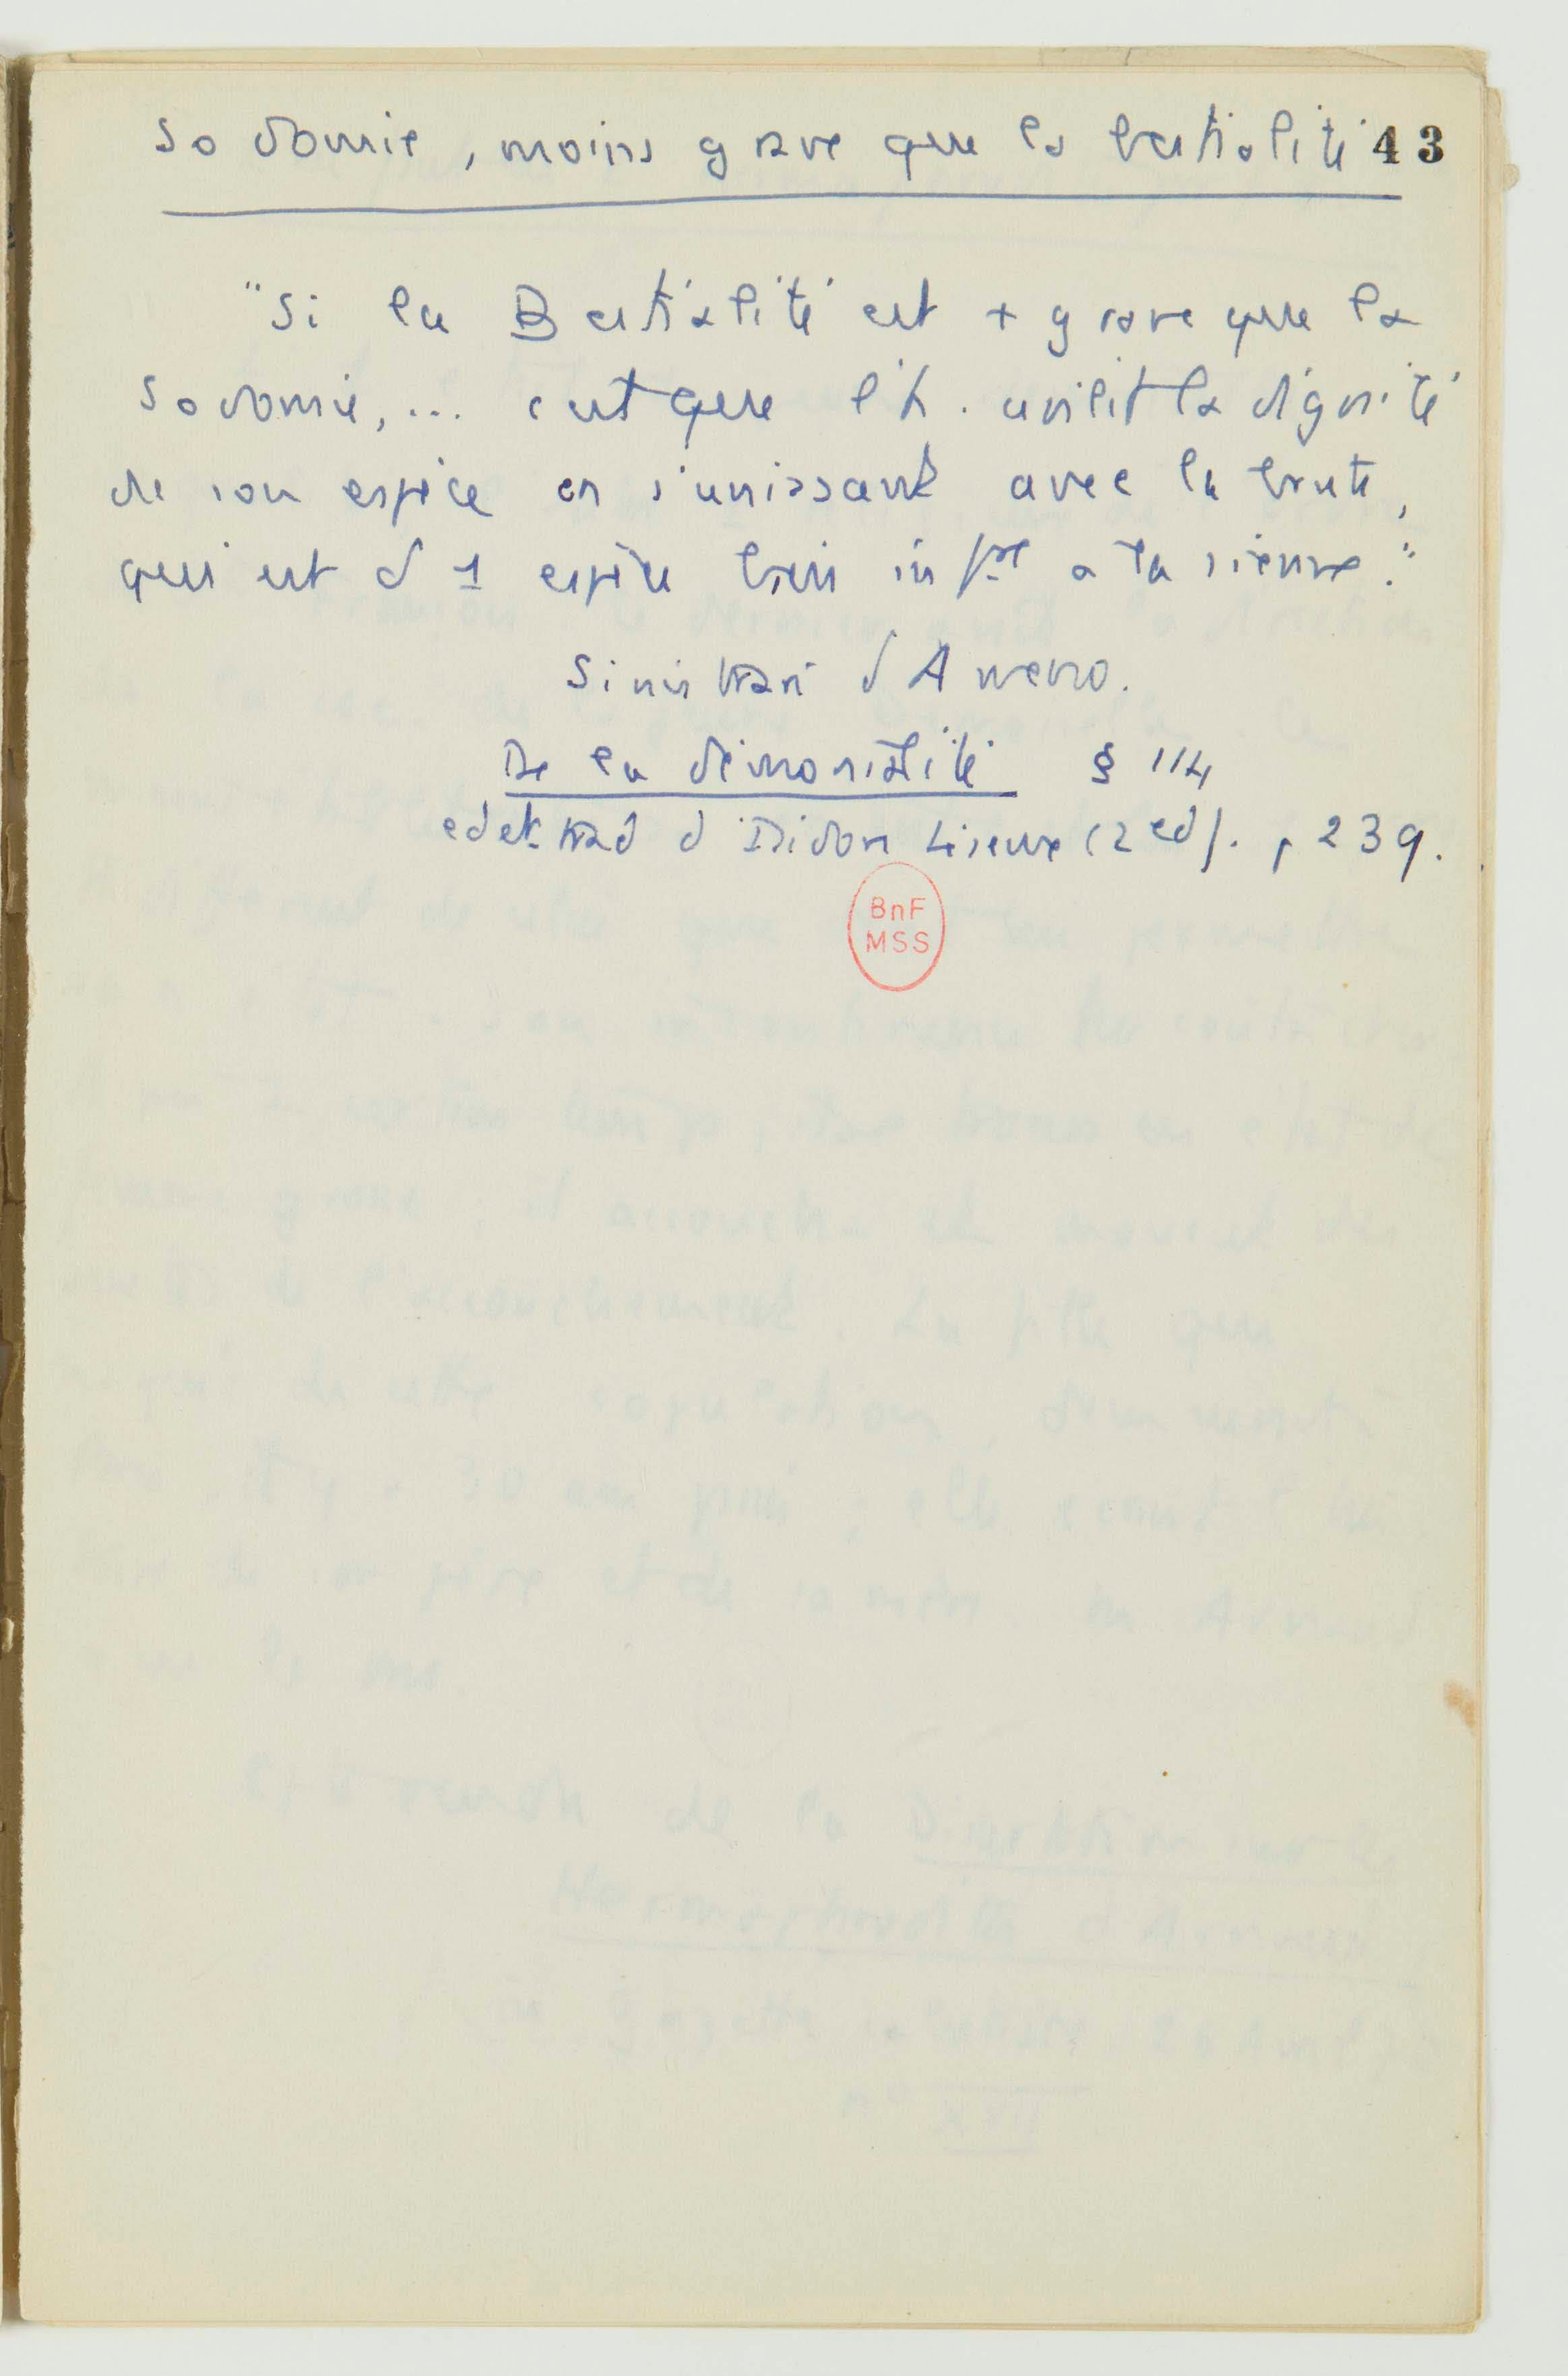 Sodomie, moins grave que la bestialité 43
"Si la Bestialité est + grave que la
Sodomie, ... c'est que l'h. avilit la dignité
de son espèce en s'unissant avec la brute,
qui est d'1 espèce bien infre à la sienne."
Sinistrari d'Ameno.
De la démonialité § 114
ed et trad d'Isidore Liseux (2 ed). p 239.
BnF
MSS